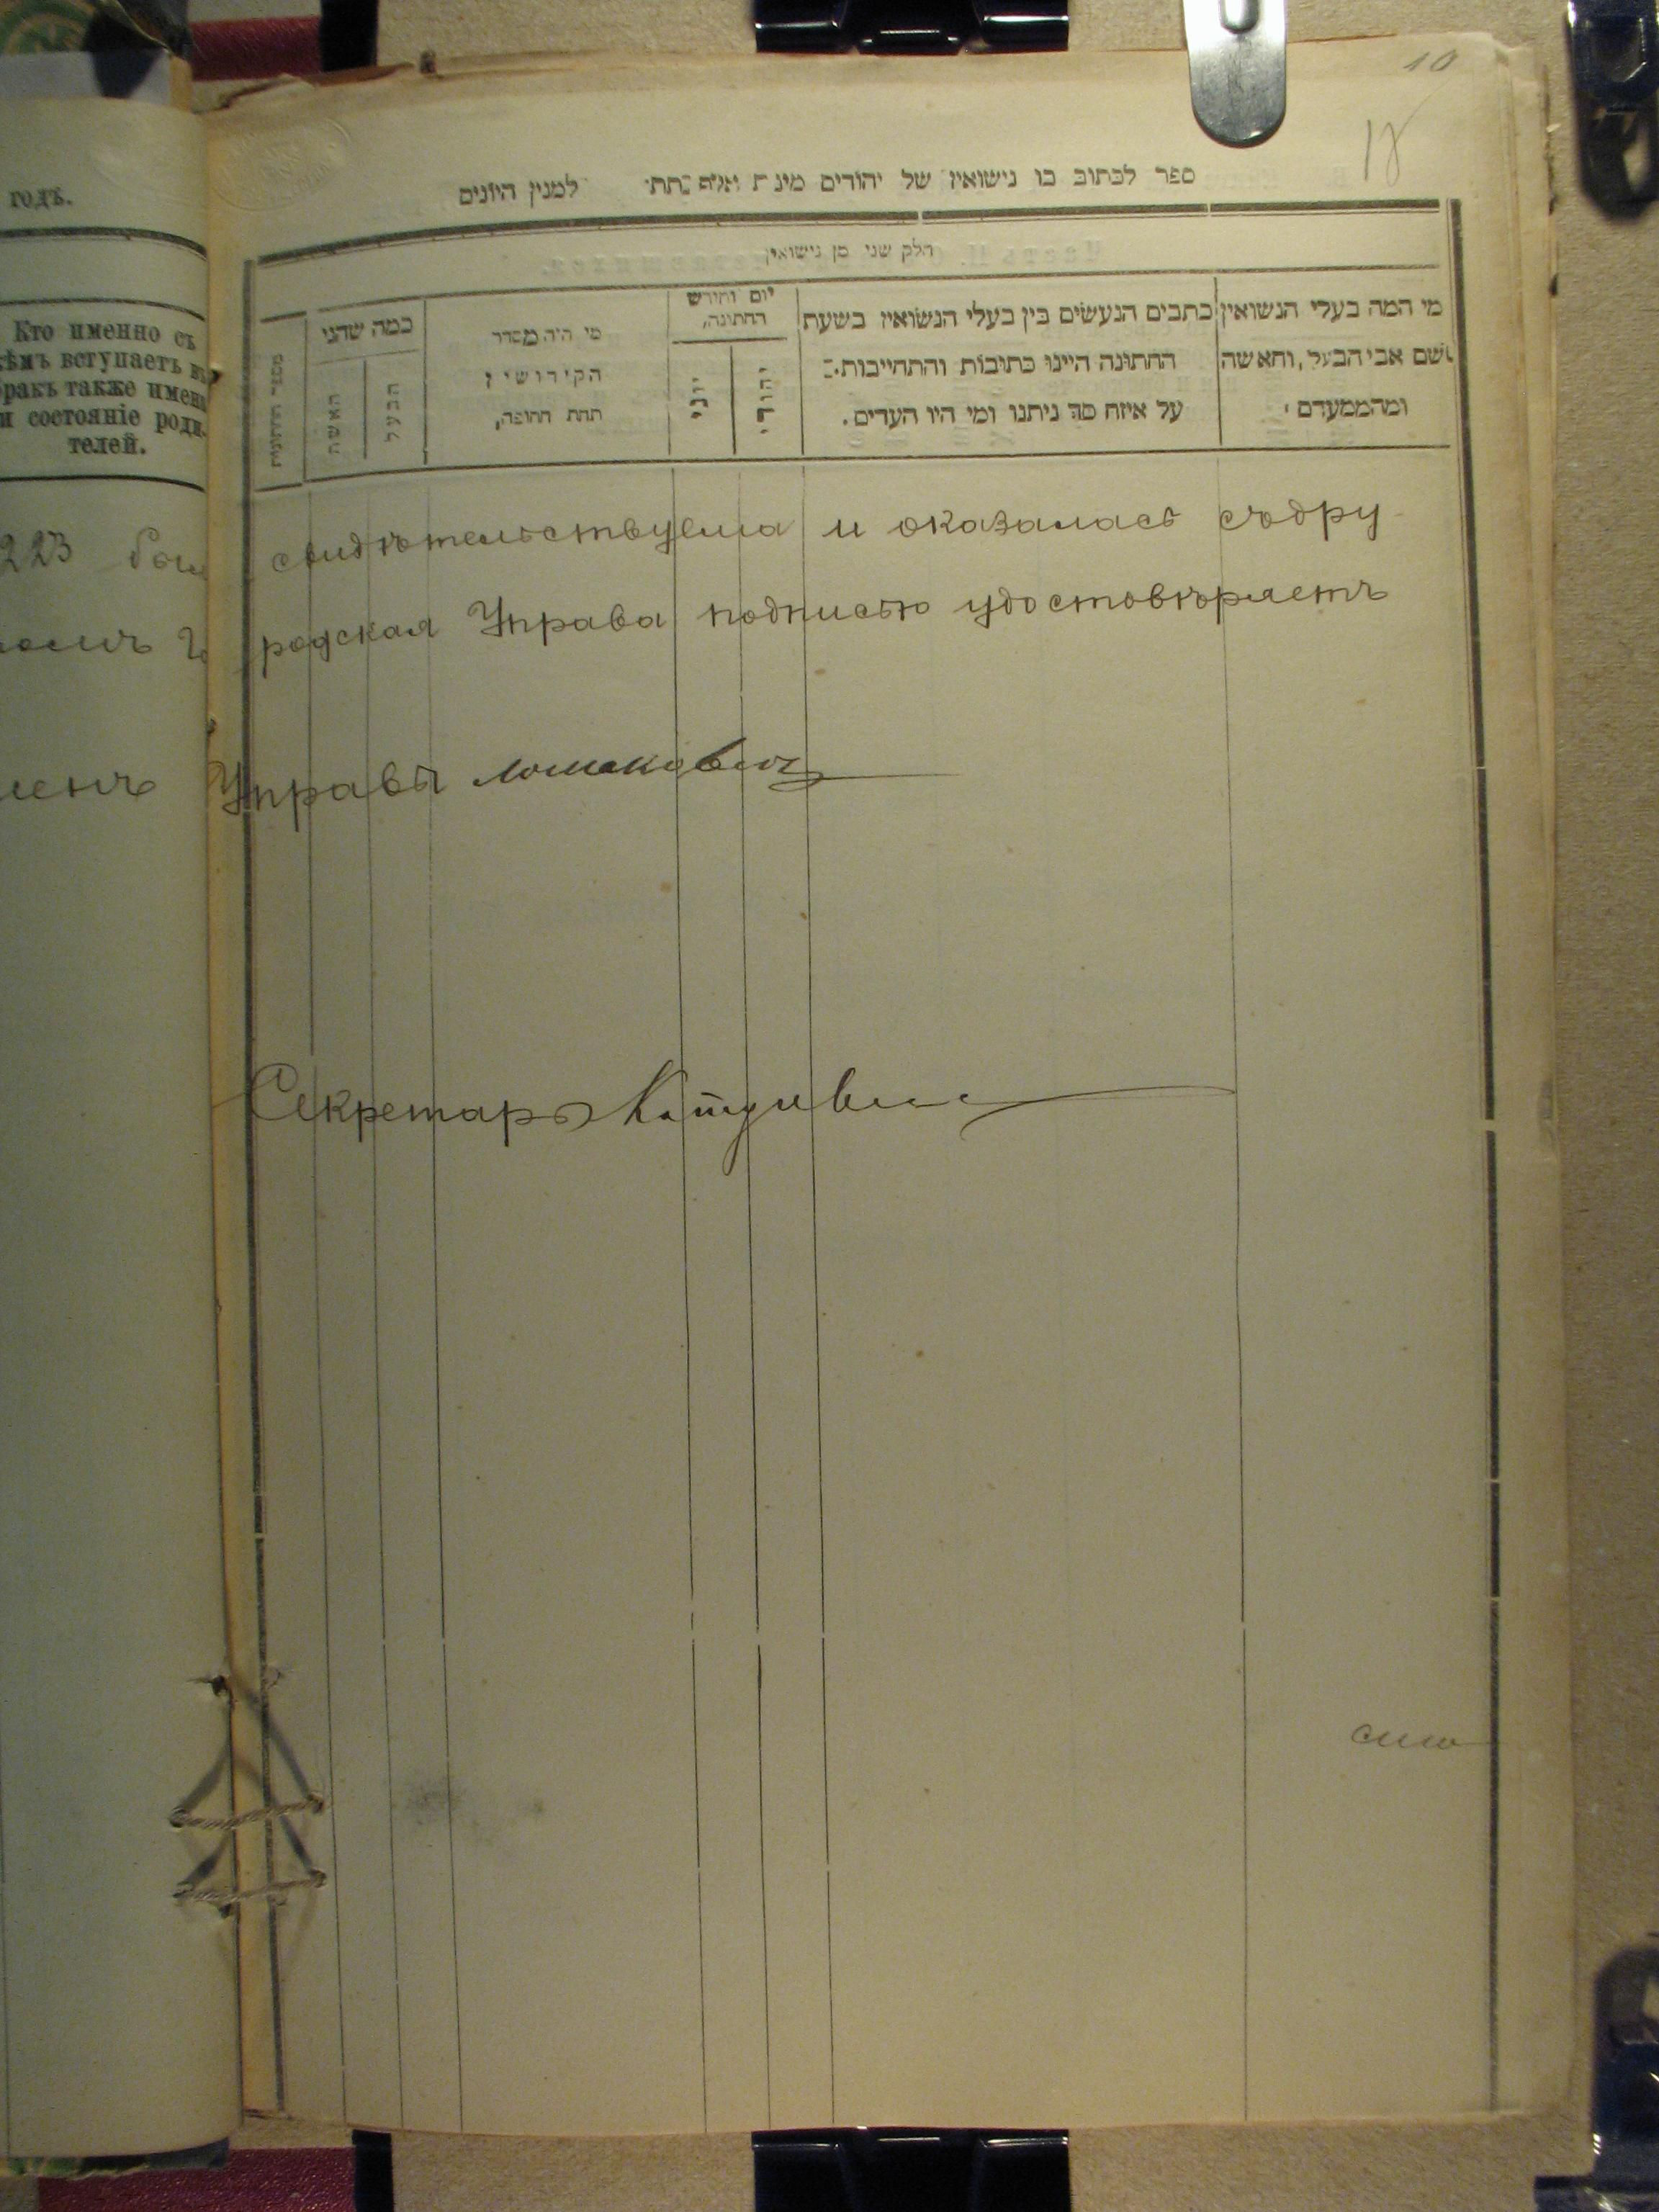 годъ.
Кто именно съ
кѣмъ вступаетъ въ
бракъ также имена
и состояніе роди-
телей.
223
10
18
ספר לכתוב בו נישואין של יהודים למנין היונים
חלק שני מן נישואין
מי המה בעלי הנשואין
ושם אבי הבעל, והאשה
ומהמעמדם
כתבים הנעשים בין בעלי הנשואין בשעת
החתונה היינו כתיבות והתחייבות.
על איזה סך ניתנו ומי היו העדים.
יום וחודש
החתונה,
יהודי
יוני
מי היה מסדר
הקידושין
תחת החופה,
כמה שהני
הבעל
האשה
свидѣтельствуема и оказалась
родская Управа подписью удостовѣряетъ
Управы
Секретарь